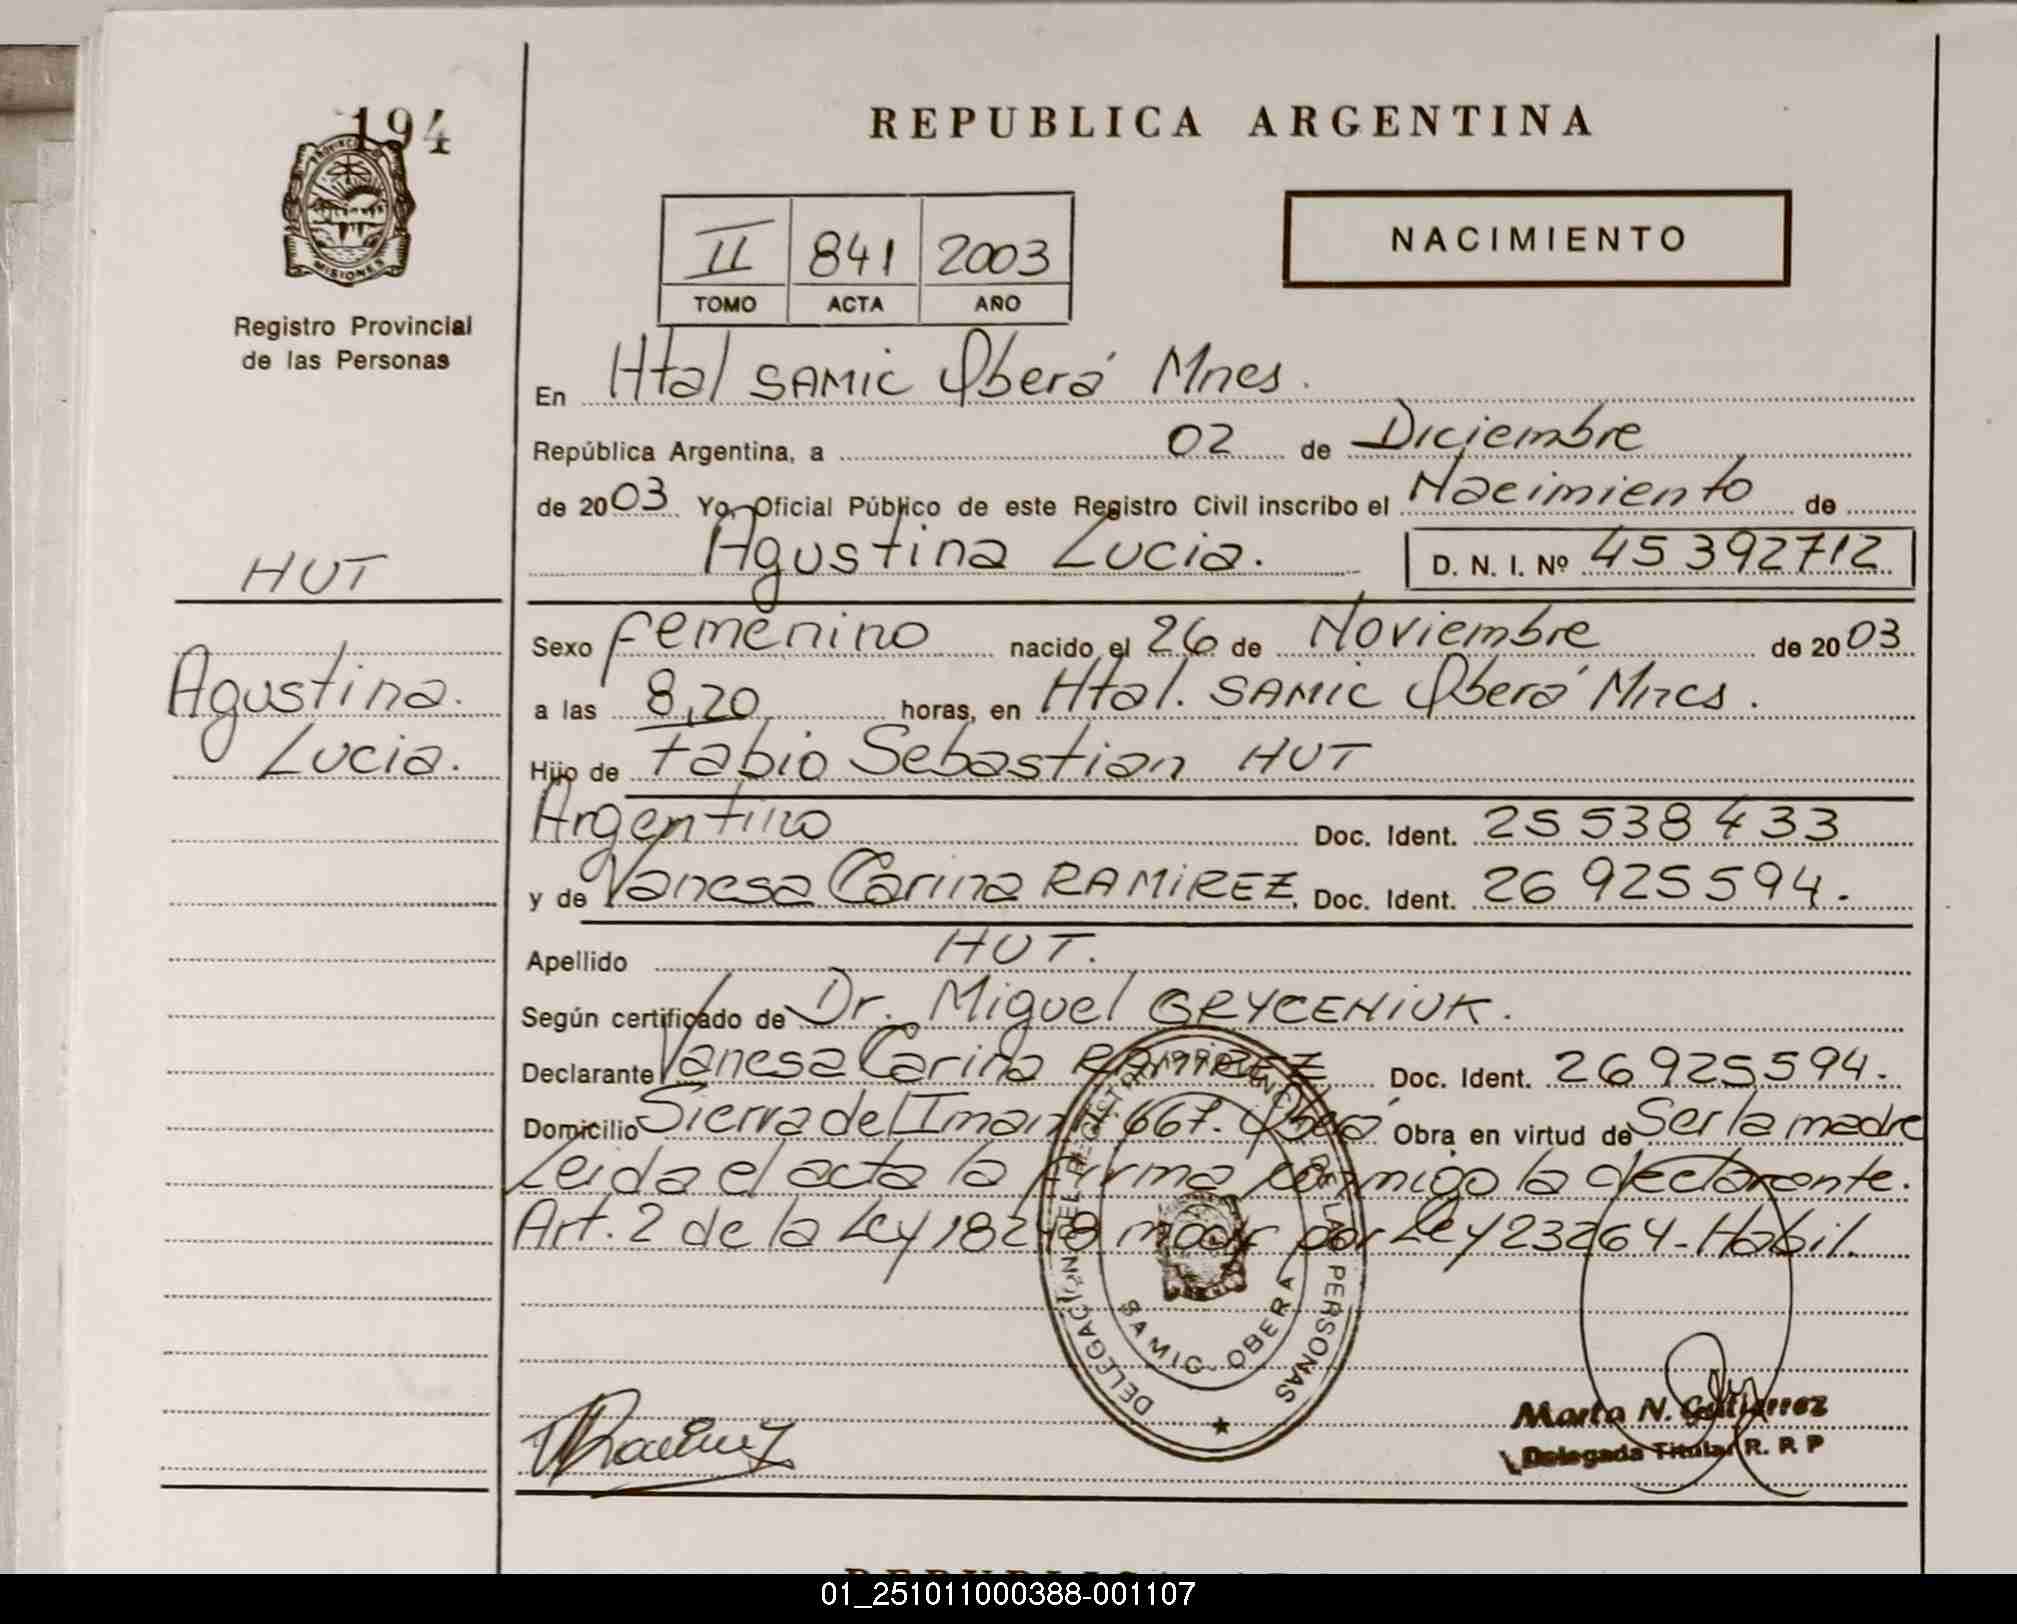 194
PROVINCIA DE
MISIONES
Registro Provincial
de las Personas
HUT
Agustina.
Lucia.
REPUBLICA ARGENTINA
II 841 2003
TOMO ACTA AÑO
NACIMIENTO
En Htal SAMIC Oberá Mnes.
República Argentina, a 02 de Diciembre
de 2003 Yo, Oficial Público de este Registro Civil inscribo el Nacimiento de
Agustina Lucia. D. N. I. Nº 45392712
Sexo femenino nacido el 26 de Noviembre de 2003
a las 8,20 horas, en Htal. SAMIC Oberá Mnes.
Hijo de Fabio Sebastian HUT
Argentino Doc. Ident. 25538433
y de Vanesa Carina RAMIREZ. Doc. Ident. 26925594.
Apellido HUT.
Según certificado de Dr. Miguel GRYCENIUK.
Declarante Vanesa Carina RAMIREZ Doc. Ident. 26925594.
Domicilio Sierra del Iman 667. Oberá Obra en virtud de Ser la madre
Leida el acta la firma conmigo la declarante.
Art. 2 de la Ley 18248 modf por Ley 23264-Habil.
DELEGACION DEL REGISTRO PROVINCIAL DE LAS PERSONAS
SAMIC - OBERA
Marta N. Gutierrez
Delegada Titular R. R P
01_251011000388-001107